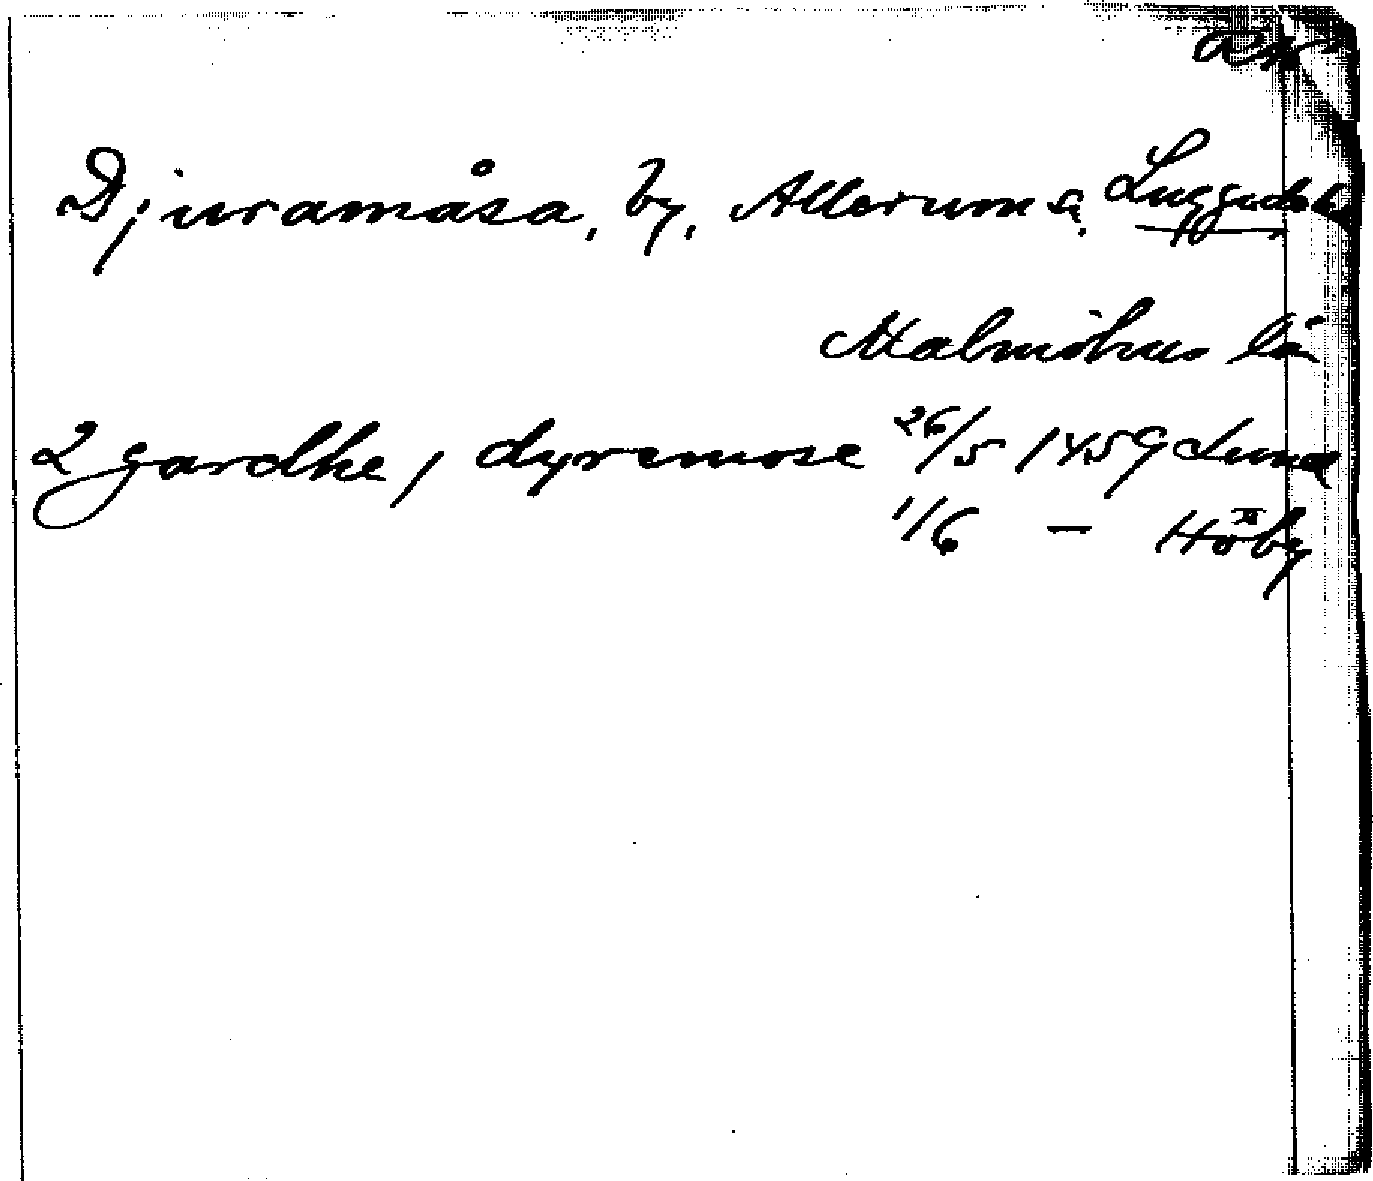 Djuramåsa, by, Allerum s, Luggude hd
Malmöhus län
2 gardhe / dyremose 26/5 1459 Lund
1/6 — Höby